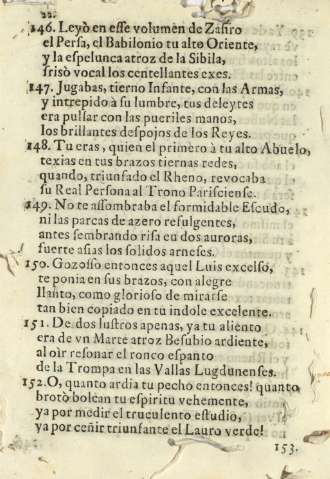 22.
146. Leyò en esse volumèn de Zafiro
el Persa, el Babilonio tu alto Oriente,
y la espelunca atroz de la Sibila,
frisò vocal los centellantes exes.
147. Jugabas, tierno Infante, con las Armas,
y intrepido à su lumbre, tus deleytes
era pulsar con las pueriles manos,
los brillantes despojos de los Reyes.
148. Tu eras, quien el primero à tu alto Abuelo,
texias en tus brazos tiernas redes,
quando, triunfado el Rheno, revocaba
su Real Persona al Trono Parisciense.
149. No te assombraba el formidable Escudo,
ni las parcas de azero refulgentes,
antes sembrando risa eu dos auroras,
fuerte asias los solidos arneses.
150. Gozosso entonces aquel Luis excelso,
te ponia en sus brazos, con alegre
llanto, como glorioso de mirarse
tan bien copiado en tu indole excelente.
151. De dos lustros apenas, ya tu aliento
era de vn Marte atroz Besubio ardiente,
al oìr resonar el ronco espanto
de la Trompa en las Vallas Lugdunenses.
152. O, quanto ardia tu pecho entonces! quanto
brotò bolcan tu espiritu vehemente,
ya por medir el truculento estudio,
ya por ceñir triunfante el Lauro verde!
153.